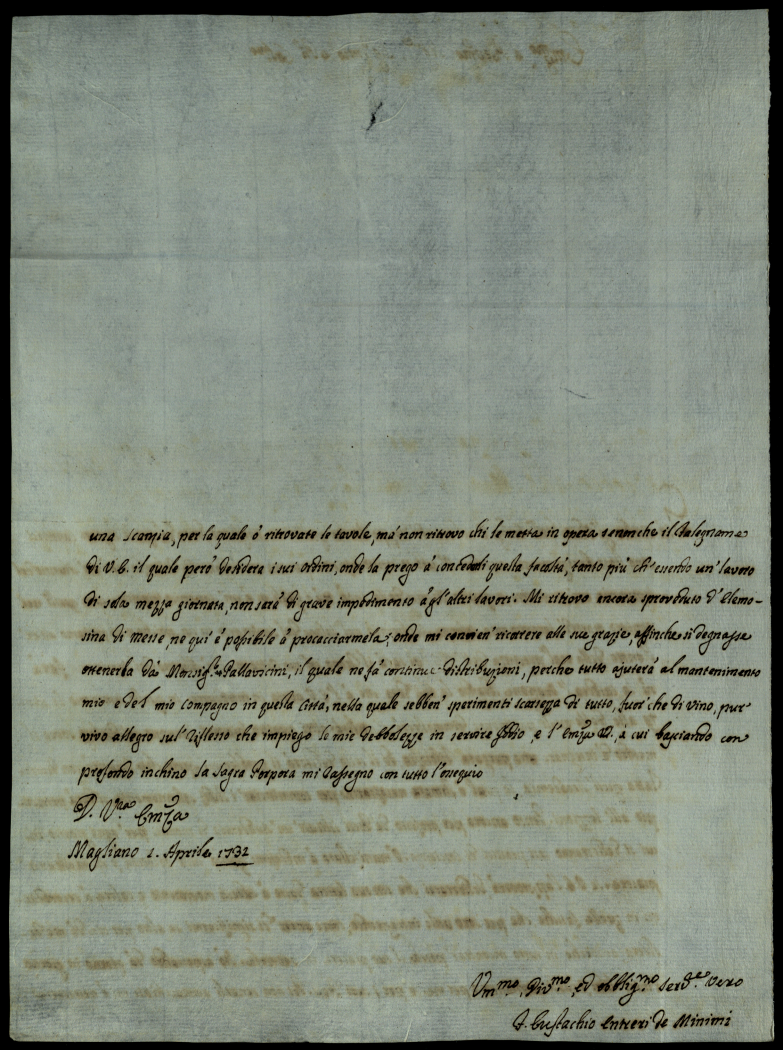 una scanzia, per la quale ò ritrovate le tavole, mà non ritrovo chi le metta in opera senonche il falegname
di V. E. il quale però desidera i suoi ordini, onde la prego à concedali questa facoltà, tanto più ch'essendo un' lavoro
di sola mezza giornata, non sarà di grave impedimento àgl'altri lavori. Mi ritrovo encora sproveduto d'Elemo-
sina di messe, ne qui è possibile ò procacciarmela; onde mi convien' ricorrere alle sue grazie, affinche si degnasse
ottenerla dà Monsig.r Pallavicini, il quale ne fà continue distribuzioni, perche tutto ajuterà al mantenimento
mio e del mio compagno in questa Città, nella quale sebben' sperimenti scarsezza di tutto, fuor' che di vino, pur'
vivo allegro sul' riflesso che impiego le mie debbolezze in servire Iddio, e l'Emza V. à cui bagiando con
profondo inchino la sagra Porpora mi rassegno con tutto l'ossequio
D. V.ra Emza
Magliano 2. Aprile 1732
Vm.mo, Div.mo, ed obblig.mo Serv.e vero
F. Eustachio Entreri de Minimi